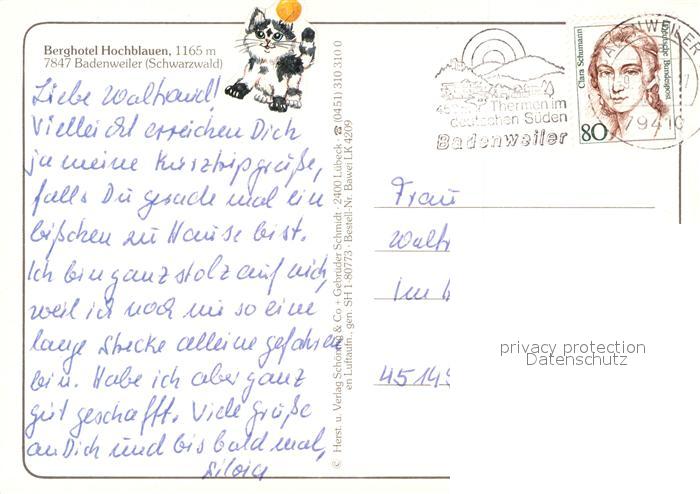 Berghotel Hochblauen, 1165 m
7847 Badenweiler (Schwarzwald)
Liebe Waltraud!
Vielleicht erreichen Dich
ja meine Kurztripgrüße,
falls Du gerade mal ein
bißchen zu Hause bist.
Ich bin ganz stolz auf mich,
weil ich noch nie so eine
lange Strecke alleine gefahren
bin. Habe ich aber ganz
gut geschafft. Viele Grüße
an Dich und bis bald mal,
Silvia
© Herst. u. Verlag Schöning & Co + Gebrüder Schmidt · 2400 Lübeck · ☎ (0451) 310 310 0
en Luftaufn., gen. SH 1-80773 · Bestell-Nr. Bawei LK 4209
Thermen im
deutschen Süden
Badenweiler
Clara Schumann
Deutsche Bundespost
80
BADENWEILER
79410
Frau
Walt
Im
45149
privacy protection
Datenschutz